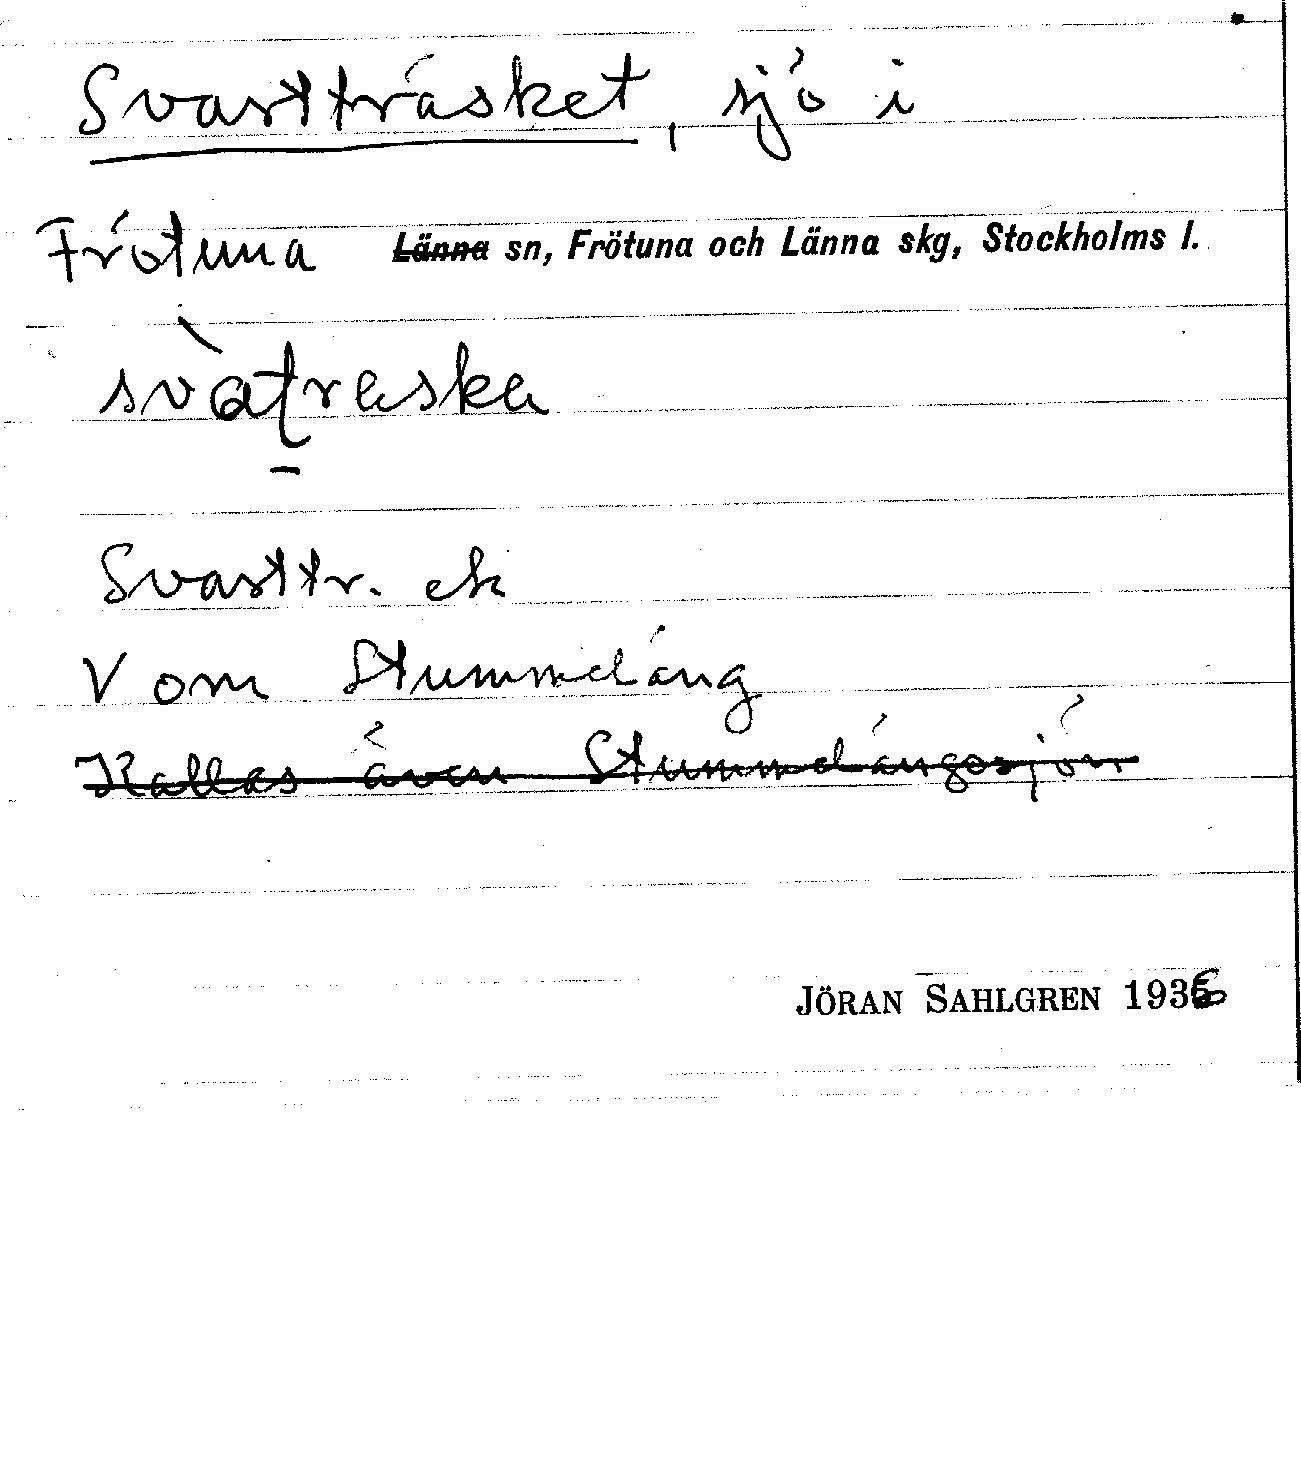 Svartträsket, sjö i
Frötuna Länna sn, Frötuna och Länna skg, Stockholms l.
svàtraska
Svarttr. ek
V om Stummäng
Kallas även Stummdängesjön
JÖRAN SAHLGREN 1936